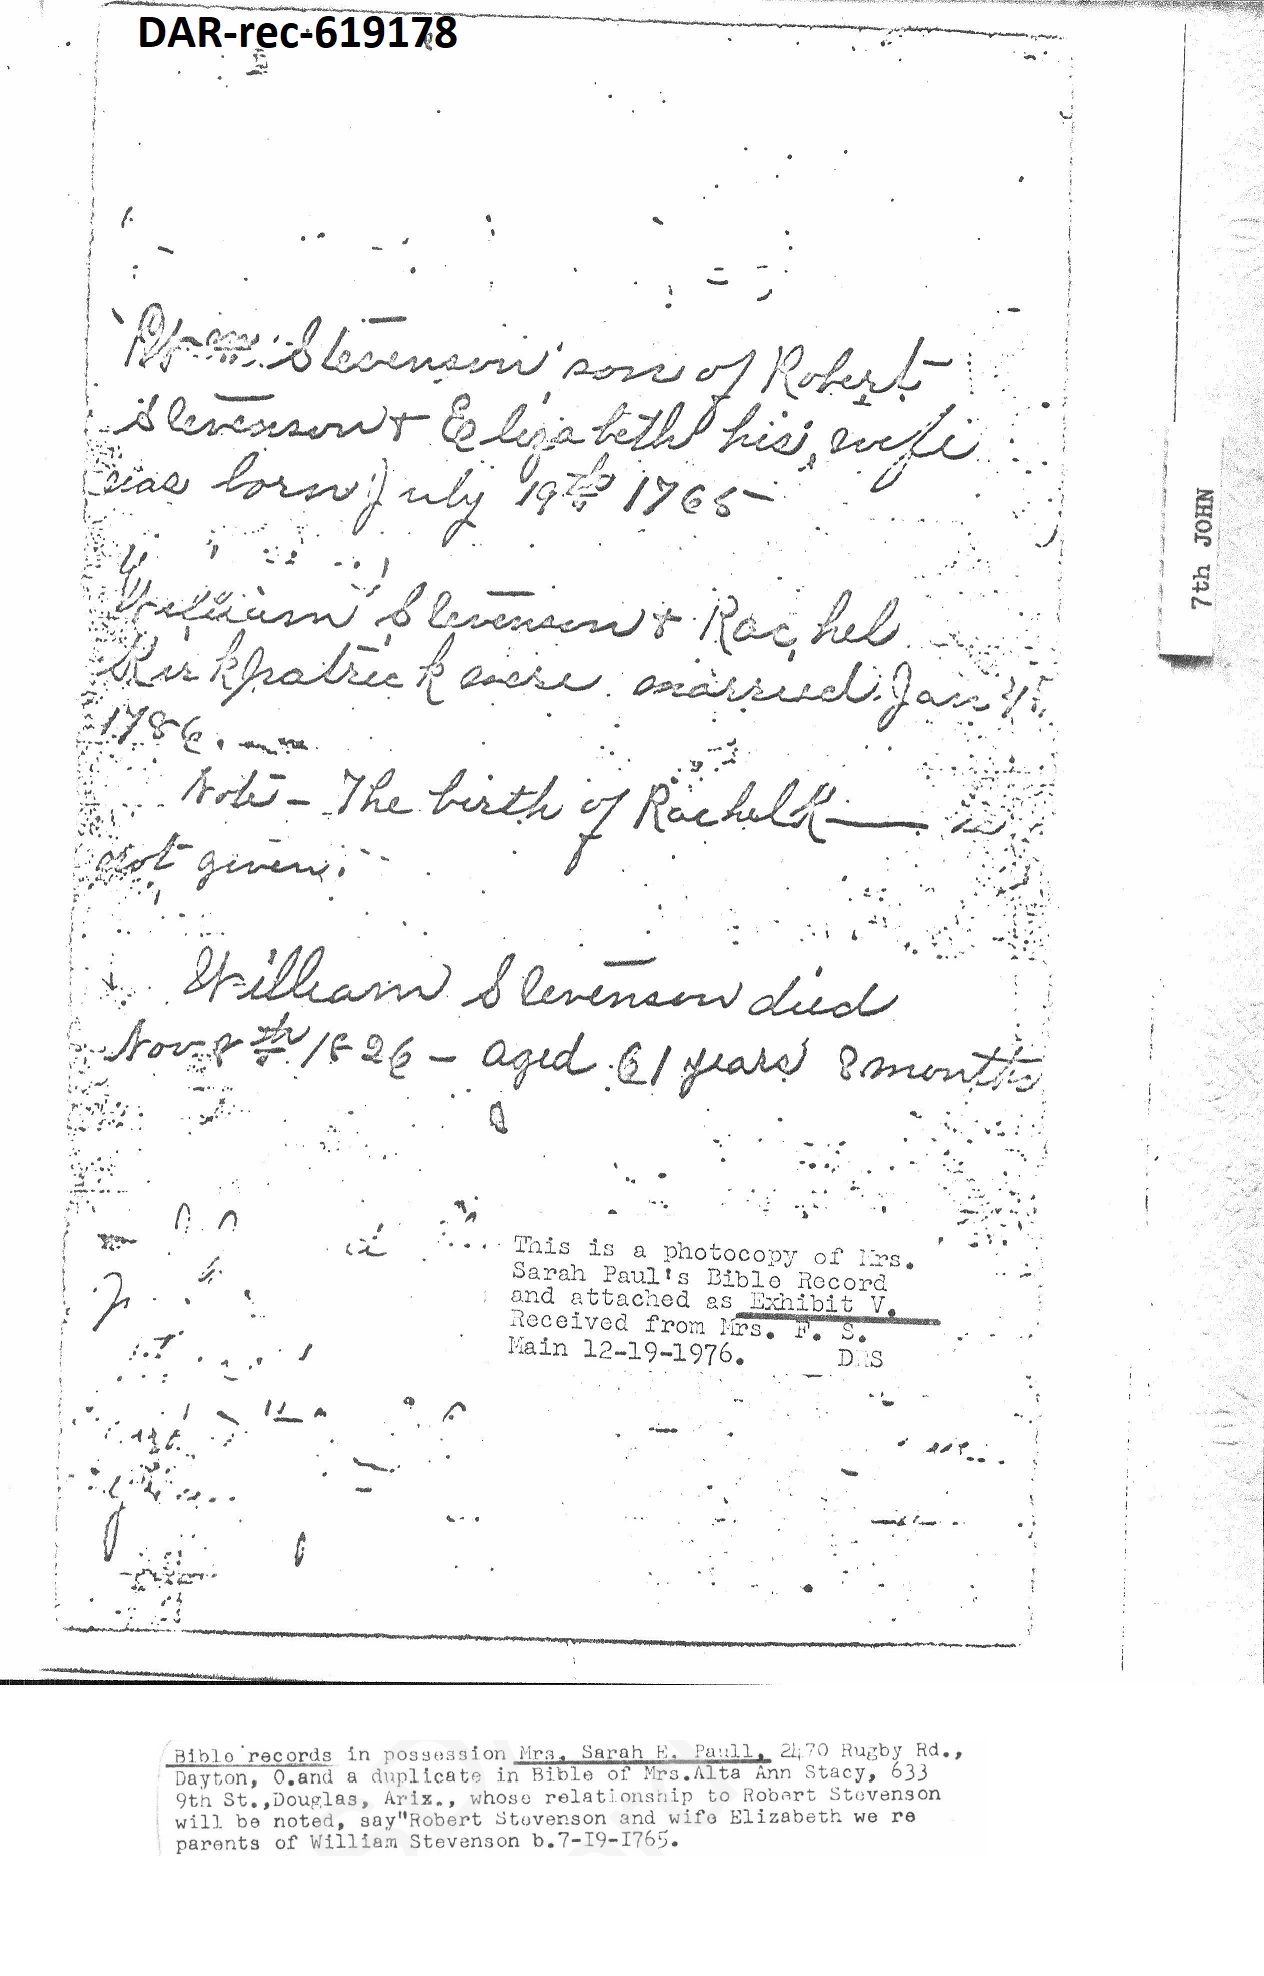 DAR-rec-619178
Wm Stevenson son of Robert
Stevenson + Elizabeth his wife
was born July 19th 1765
William Stevenson + Rachel
Kirkpatrick were married Jan
1786.
Note - The birth of Rachel K—— is
not given.
William Stevenson died
Nov 8th 1826 - aged 61 years 8 months
This is a photocopy of Mrs.
Sarah Paul's Bible Record
and attached as Exhibit V.
Received from Mrs. F. S.
Main 12-19-1976.
7th JOHN
Bible records in possession Mrs. Sarah E. Paull, 2470 Rugby Rd.,
Dayton, O.and a duplicate in Bible of Mrs.Alta Ann Stacy, 633
9th St.,Douglas, Ariz., whose relationship to Robert Stevenson
will be noted, say"Robert Stevenson and wife Elizabeth we re
parents of William Stevenson b.7-I9-I765.